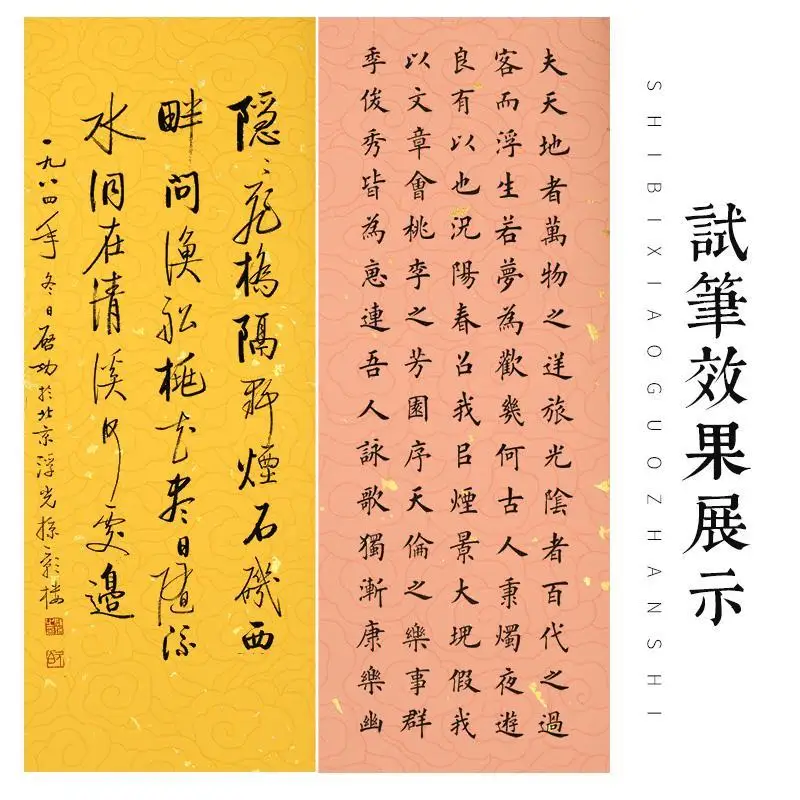 試筆效果展示
SHIBIXIAOGUOZHANSHI
夫天地者萬物之逆旅光陰者百代之過
客而浮生若夢為歡幾何古人秉燭夜遊
良有以也況陽春召我㠯煙景大塊假我
以文章會桃李之芳園序天倫之樂事群
季俊秀皆為惠連吾人詠歌獨漸康樂幽
隱〻飛橋隔野煙石磯西
畔問漁船桃花盡日隨流
水洞在清溪何處邊
一九八四年冬日啓功於北京浮光掠影樓